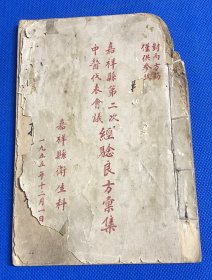 封內方药
僅供参改
嘉祥縣第二次
中醫代表會議
經驗良方彙集
嘉祥縣衛生科
一九五五年十二月一日